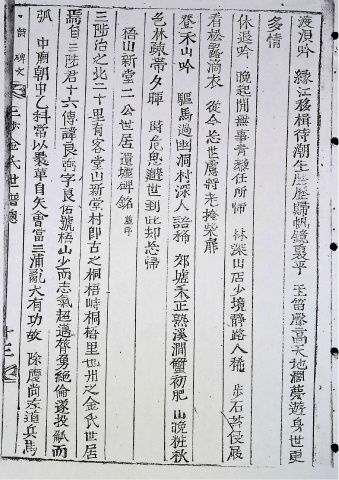 渡浿吟 緣江移楫待潮生 歷歷歸帆鏡裏平 玉笛聲高天地濶 夢遊身世更
多情
休退吟 晚起閒無事 靑藜任所帰 林深山店少 境靜路人稀 步石苔侵屐
看松露滴衣 從今忘世慮 將老掩柴扉
登禾山吟 驅馬過幽洞 村深人語稀 郊墟禾正熟 溪澗蟹初肥 山晚粧秋
色 林疎帶夕暉 時危思避世 到此却忘帰
梧山新堂二公世居遺墟碑銘 並序
三陟治之北二十里有客堂山新堂村即古之桐梧峙桐梧里也州之金氏世居
焉自三陟君十六傳諱良弼字良佑號梧山少而志氣超邁膂勇絶倫遂投觚而
弧 中廟朝中乙科常以裹革自矢會當三浦亂大有功故 除慶尙左道兵馬
碑文 三陟金氏世譜 十三